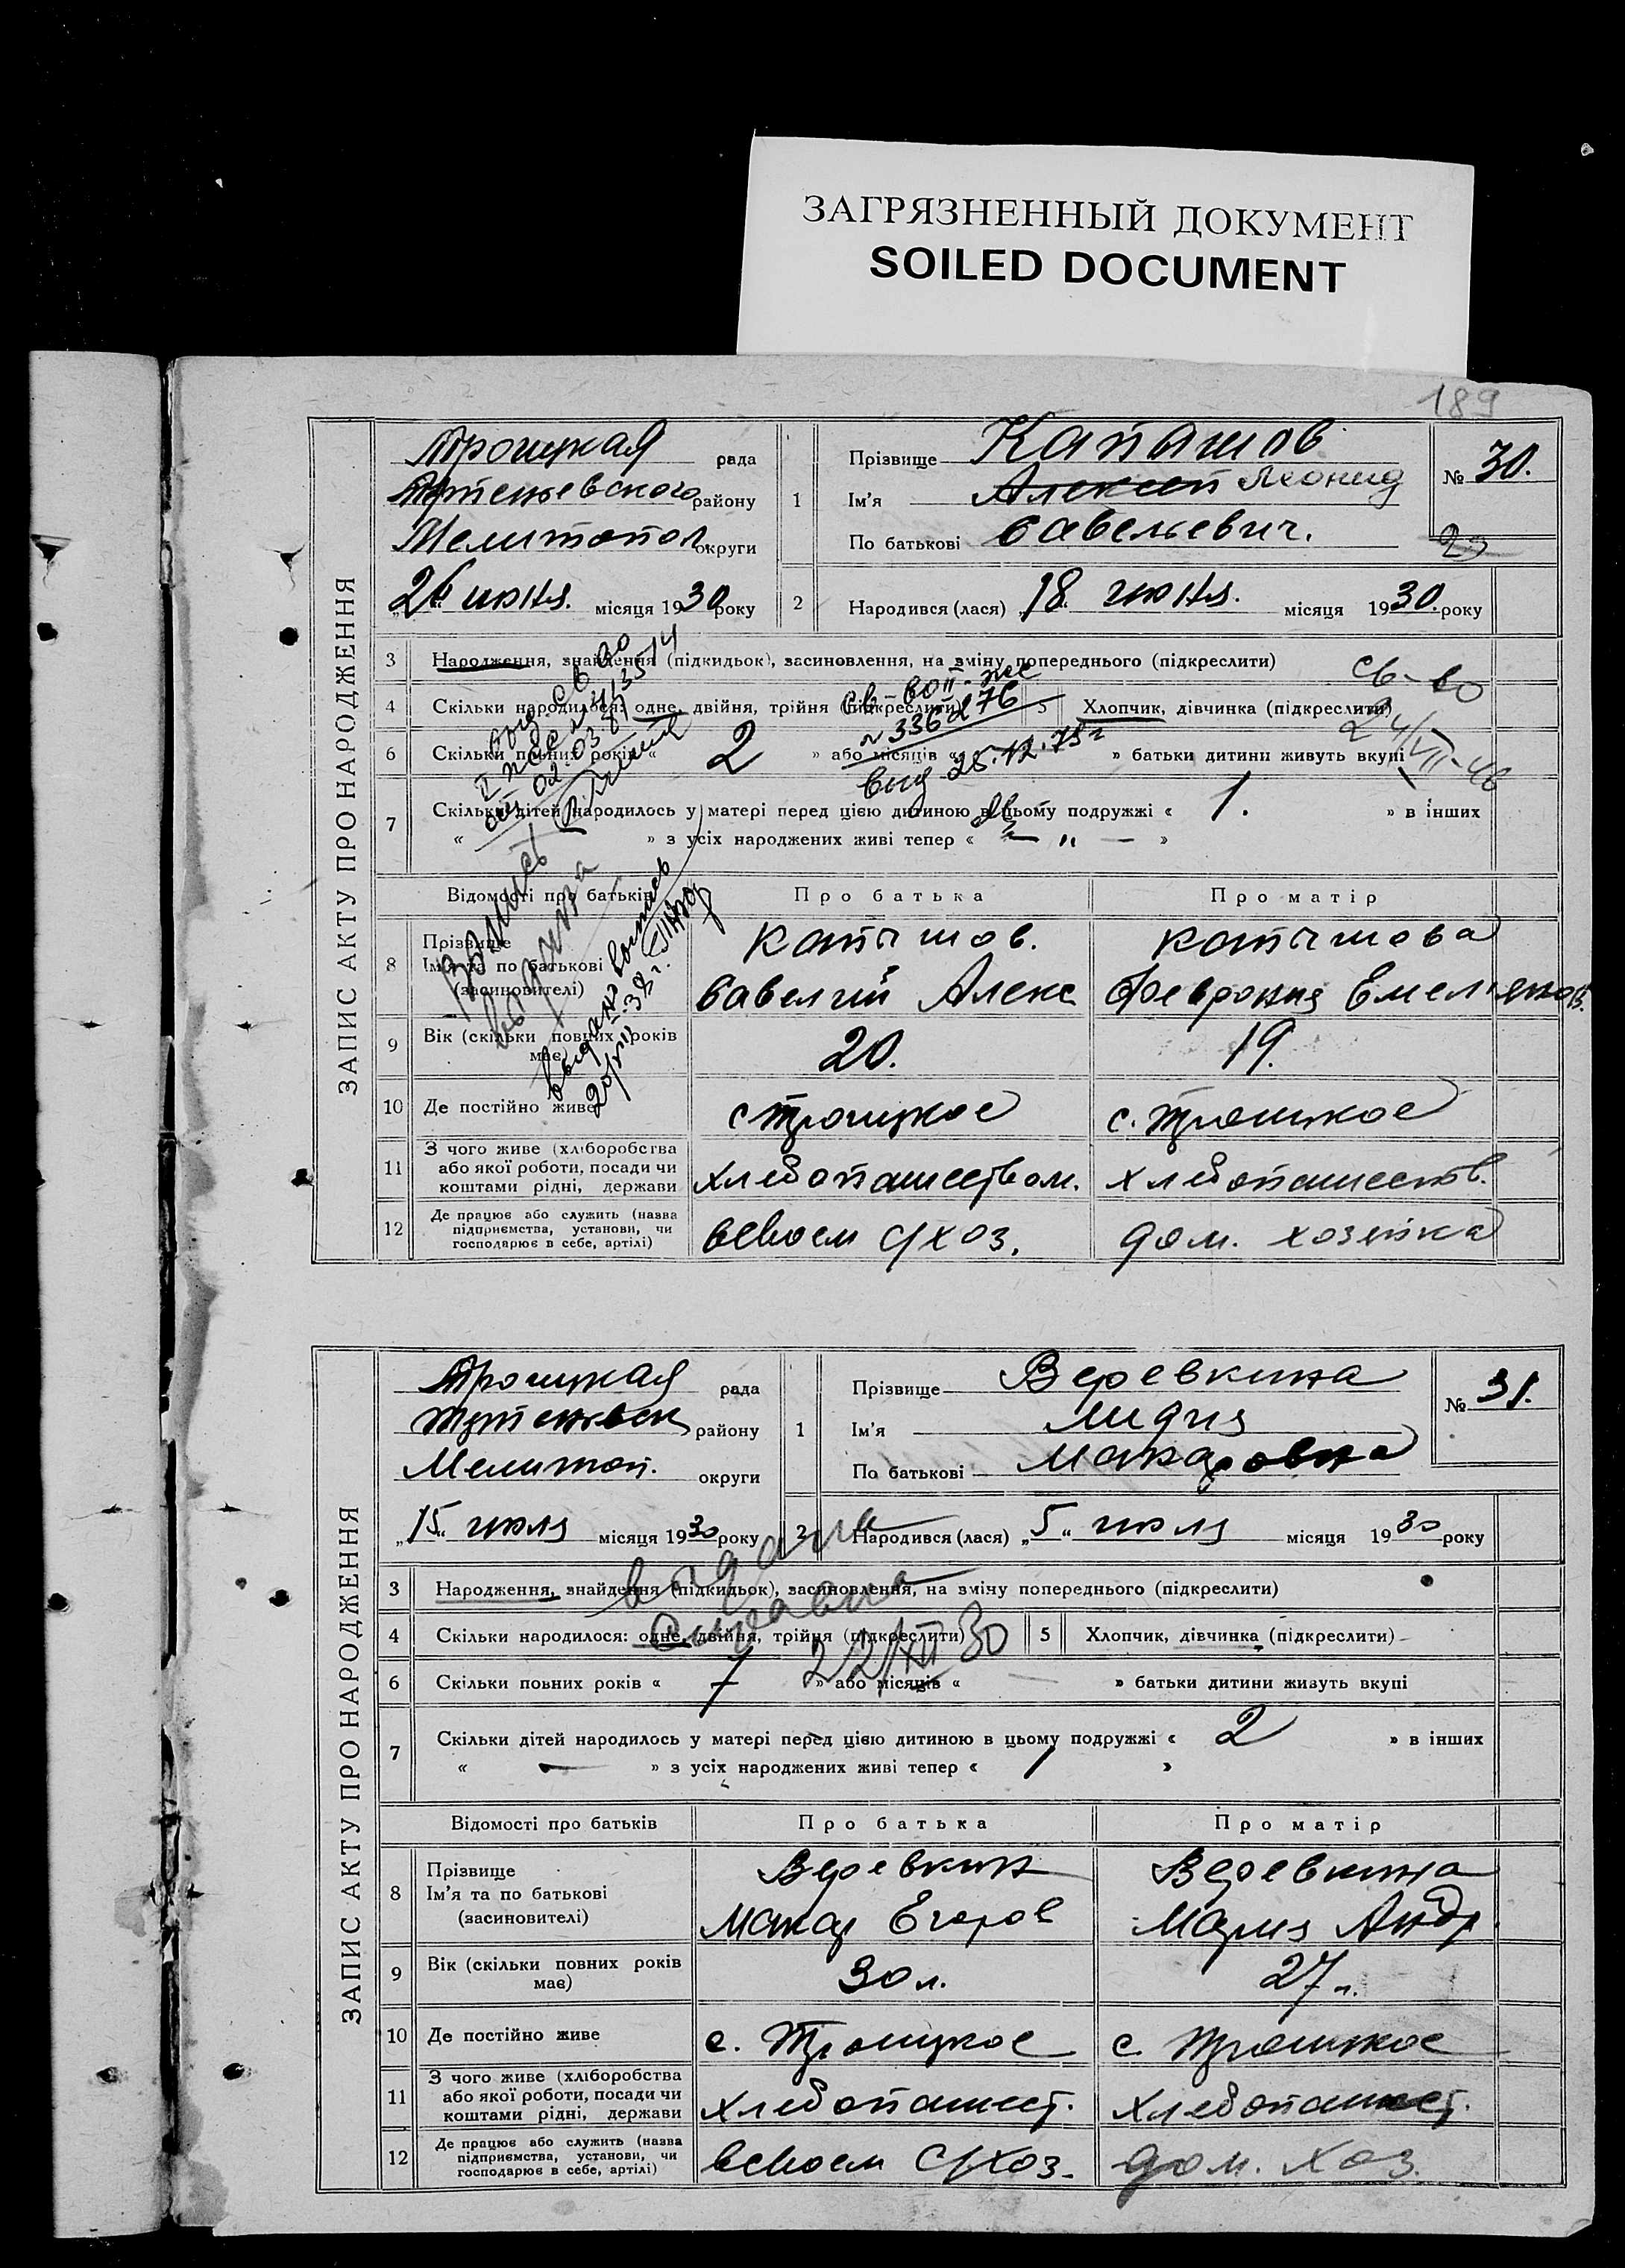 ЗАГРЯЗНЕННЫЙ ДОКУМЕНТ
SOILED DOCUMENT
189
ЗАПИС АКТУ ПРО НАРОДЖЕННЯ
Троицкая рада
району
Мелитопол округи
„26“ июня. місяця 1930 року
1 Прізвище Капашов
Ім’я Алексей Леонид
По батькові Савельевич.
№ 30.
29
2 Народився (лася) „18“ июня. місяця 1930. року
3 Народження, знайдення (підкидьок), засиновлення, на зміну попереднього (підкреслити)
4 Скільки народилося: одне, двійня, трійня (підкреслити) 5 Хлопчик, дівчинка (підкреслити)
6 Скільки повних років « 2 » або місяців « » батьки дитини живуть вкупі
7 Скільки дітей народилось у матері перед цією дитиною в цьому подружжі « 1. » в інших
« » з усіх народжених живі тепер « — „ — »
св-во
24/VII-46
св-во II-
№ 336276
выд 25.12.75г
выд. св во
02.03.87
Выпись
выдана
выдано выпись
Відомості про батьків Про батька Про матір
8 Прізвище
Ім’я та по батькові
(засиновителі)
Капашов. Капашова
Савелий Алекс Феврония Емельянов.
9 Вік (скільки повних років має) 20. 19.
10 Де постійно живе с Троицкое с. Троицкое
11 З чого живе (хліборобства
або якої роботи, посади чи
коштами рідні, держави
хлебопашеством. хлебопашеств.
12 Де працює або служить (назва
підприємства, установи, чи
господарює в себе, артілі)
всвоем с/хоз. дом. хозяйка
ЗАПИС АКТУ ПРО НАРОДЖЕННЯ
Троицкая рада
району
Мелитоп. округи
„15“ июля місяця 1930 року
1 Прізвище Веревкина
Ім’я Лидия
По батькові Макаровна
№ 31.
2 Народився (лася) „5“ июля місяця 1930 року
3 Народження, знайдення (підкидьок), засиновлення, на зміну попереднього (підкреслити)
4 Скільки народилося: одне, двійня, трійня (підкреслити) 5 Хлопчик, дівчинка (підкреслити)
6 Скільки повних років « 7 » або місяців « — » батьки дитини живуть вкупі
7 Скільки дітей народилось у матері перед цією дитиною в цьому подружжі « 2 » в інших
« — » з усіх народжених живі тепер « 1 »
выдана
справка
22/XII 30
Відомості про батьків Про батька Про матір
8 Прізвище
Ім’я та по батькові
(засиновителі)
Веревкин Веревкина
Макар Егоров Мария Андр.
9 Вік (скільки повних років має) 30 л. 27 л.
10 Де постійно живе с. Троицкое с. Троицкое
11 З чого живе (хліборобства
або якої роботи, посади чи
коштами рідні, держави
хлебопашест. хлебопашест.
12 Де працює або служить (назва
підприємства, установи, чи
господарює в себе, артілі)
всвоем с/хоз. дом. хоз.